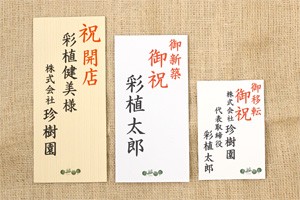 祝開店
彩植健美様
株式会社 珍樹園
御新築
御祝
彩植太郎
御移転
御祝
株式会社 珍樹園
代表取締役 彩植太郎